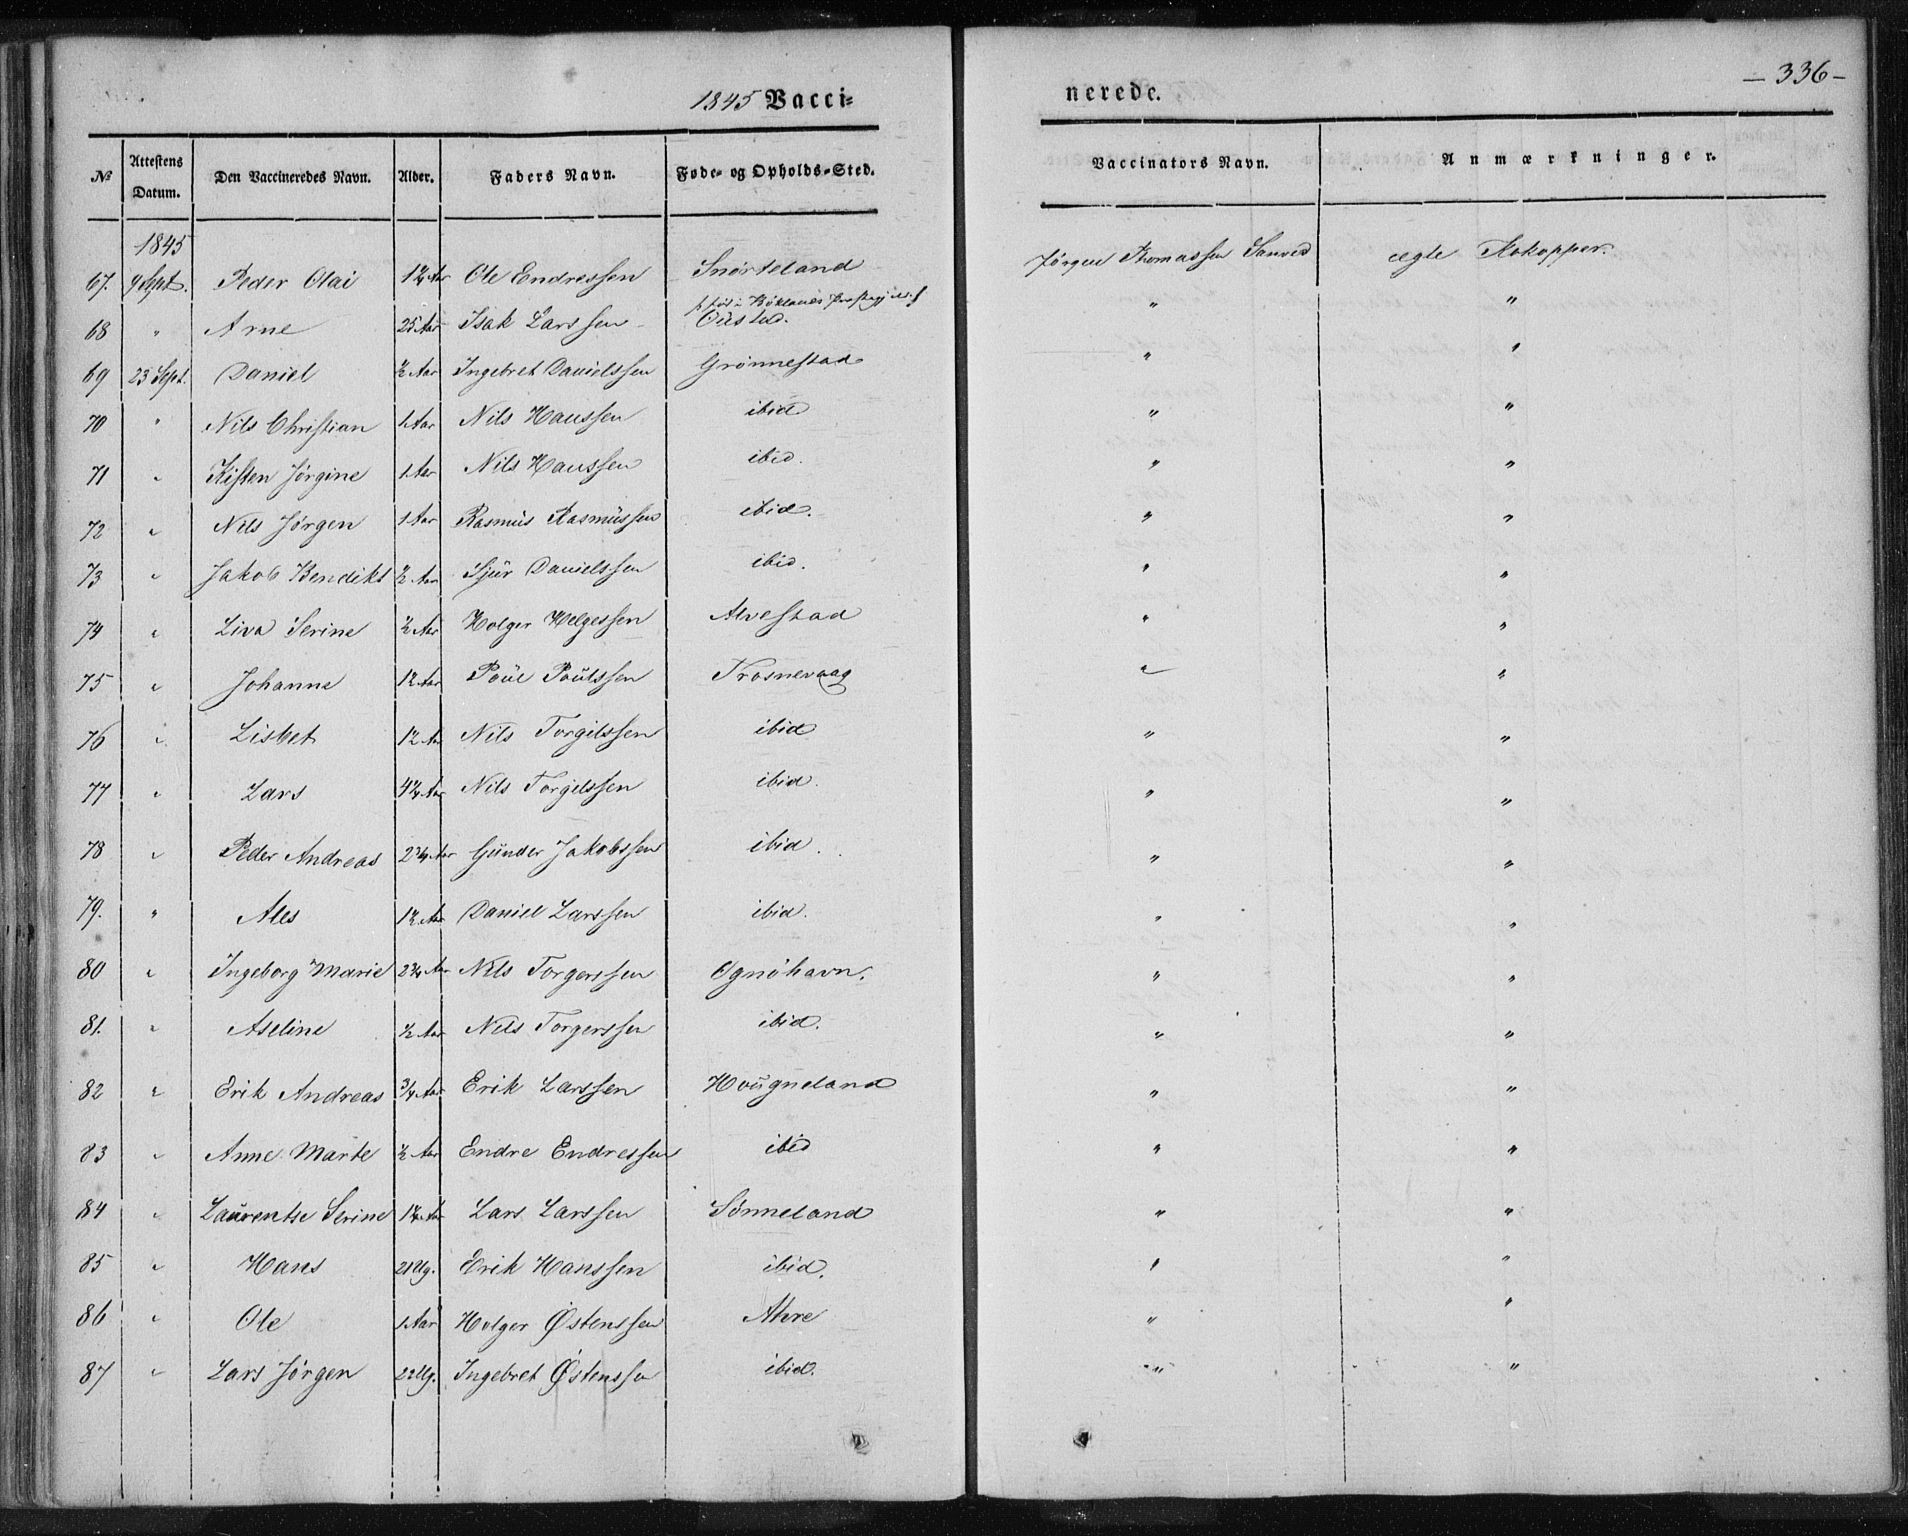 1845 Vacci=
nerede.
— 336 —
№ Attestens Datum. Den Vaccineredes Navn. Alder. Faders Navn. Føde- og Opholds-Sted. Vaccinators Navn. Anmærkninger.
1845
67. 9 Sept. Peder Olai 1¼ Aar Ole Endressen Snørteland Jørgen Thomassen Sanved ægte Kokopper.
68 " Arne 25 Aar Isak Larssen Ousted. " "
69 23 Sept. Daniel ½ Aar Ingebret Danielssen Grønnestad " "
70 " Nils Christian 1 Aar Nils Hanssen ibid " "
71 " Kisten Jørgine 1 Aar Nils Hanssen ibid. " "
72 " Nils Jørgen 1 Aar Rasmus Rasmussen ibid. " "
73 " Jakob Bendikt ½ Aar Sjur Danielssen ibid. " "
74 " Liva Serine ½ Aar Holger Helgessen Alvestad " "
75 " Johanne 1½ Aar Poul Poulssen Trosnevaag " "
76 " Lisbet 1½ Aar Nils Torgilssen ibid " "
77 " Lars 4¼ Aar Nils Torgilssen ibid. " "
78 " Peder Andreas 2¾ Aar Gunder Jakobssen ibid. " "
79. " Ales 1½ Aar Daniel Larssen ibid. " "
80 " Ingeborg Marie 2¾ Aar Nils Torgerssen Ognøhavn. " "
81. " Aseline ½ Aar Nils Torgerssen ibid. " "
82 " Erik Andreas ¾ Aar Erik Larssen Hougneland " "
83 " Anne Marte ½ Aar Endre Endressen ibid " "
84 " Laurentse Serine 1¼ Aar Lars Larssen Sønneland " "
85 " Hans 21 Ug. Erik Hanssen ibid. " "
86 " Ole 1 Aar Holger Østenssen Ahre " "
87 " Lars Jørgen 22 Ug. Ingebret Østenssen ibid. " "